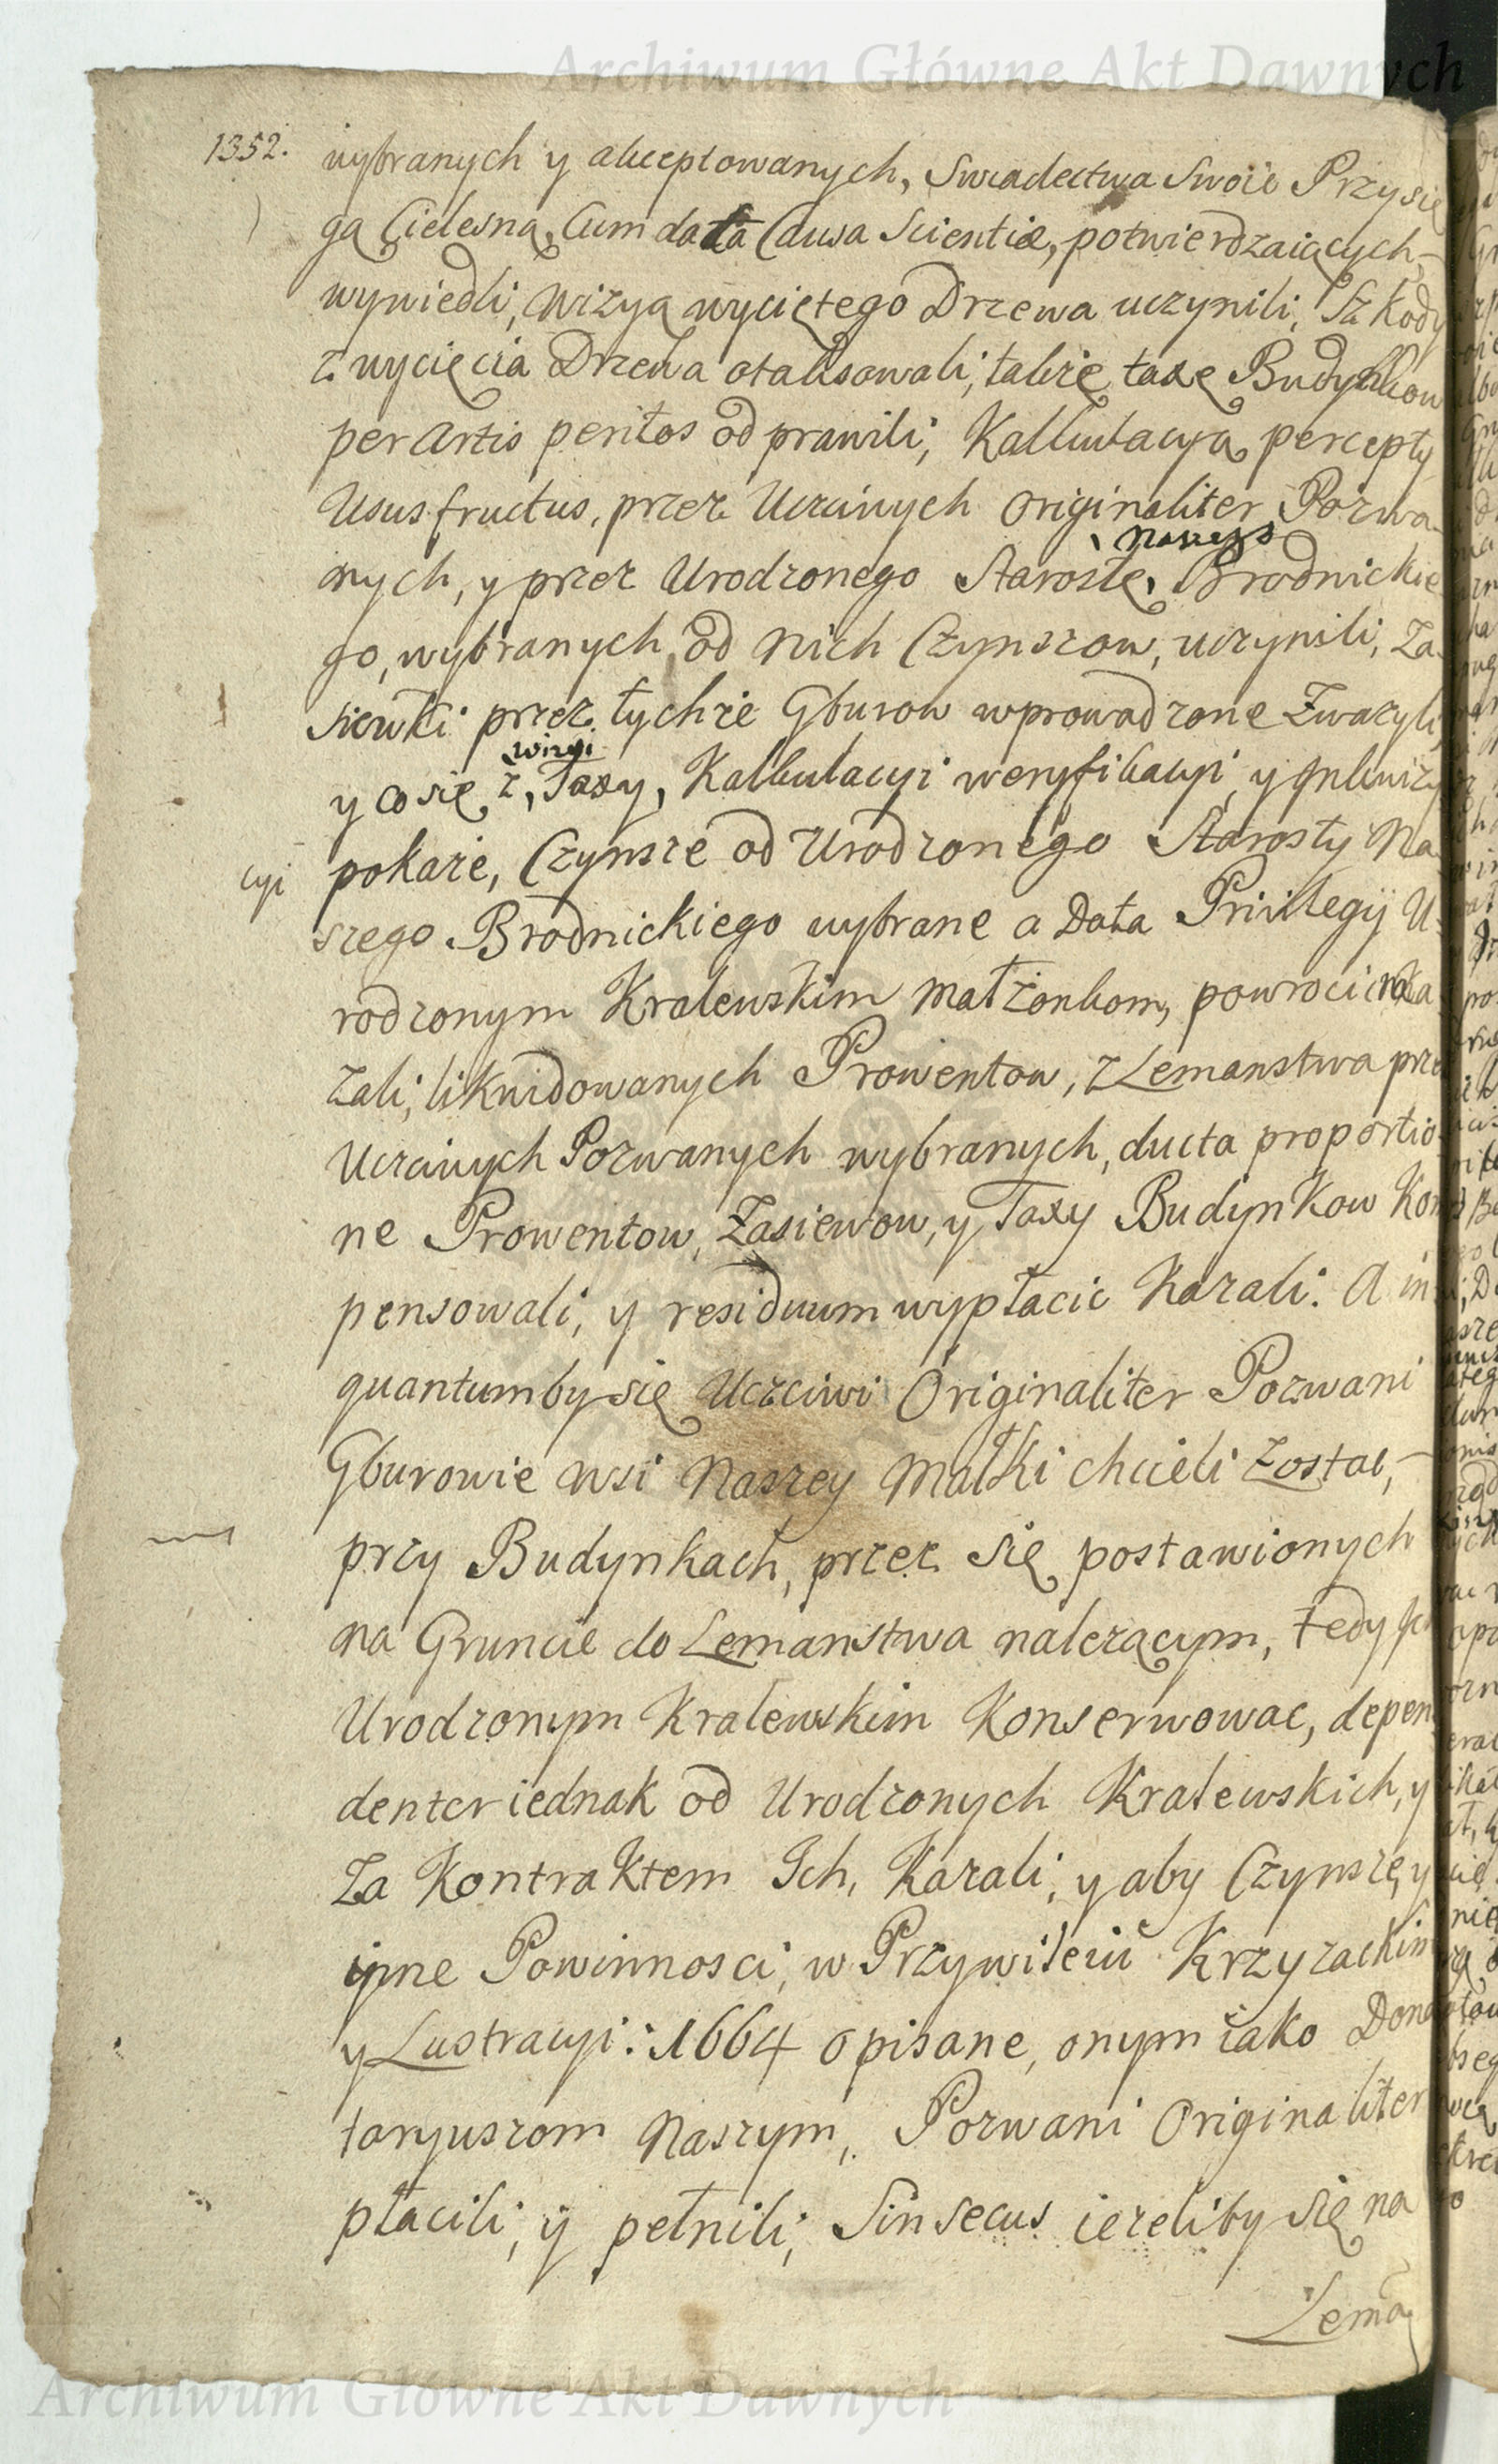 Archiwum Główne Akt Dawnych
1352.
wybranych y akceptowanych, Swiadectwa Swoie Przysię
gą Cielesną, Cum data Causa Scientiæ, potwierdzaiących,
wywiedli, Wizyą wyciętego Drzewa uczynili, Szkody
z wycięcia Drzewa otaksowali, także taxę Budynkow
per Artis peritos odprawili, Kalkulacyą percepty
Ususfructus, przez Uczciwych Originaliter Pozwa
Naszego
nych, y przez Urodzonego Starostę Brodnickie
go, wybranych od Nich Czynszow, uczynili, Za
Siewki przez tychże Gburow wprowadzone Zwazyli,
wizyi
y co się z, Taxy, Kalkulacyi weryfikacyi, y Inkwizy
cyi pokaże, Czynsze od Urodzonego Starosty Na
szego Brodnickiego wybrane a Data Privilegij U
rodzonym Kralewskim Małżonkom, powrocić Ka
zali, likwidowanych Prowentow, z Lemanstwa prze
Uczciwych Pozwanych wybranych, ducta proportio
ne Prowentow, Zasiewow, y Taxy Budynkow Kom
pensowali, y residuum wypłacic Kazali. A in
quantumby się Uczciwi Originaliter Pozwani
Gburowie Wsi Naszey Małki chcieli Zostac,
przy Budynkach, przez Się postawionych
na Gruncie do Lemanstwa należącym, tedy Ich
Urodzonym Kralewskim Konserwowac, depen
denter iednak od Urodzonych Kralewskich, y
Za Kontraktem Ich, Kazali, y aby Czynsze, y
inne Powinnosci, w Przywileiu Krzyzackim
y Lustracyi: 1664 opisane, onym iako Dona
taryuszom Naszym, Pozwani Originaliter
płacili, y pełnili, Sin secus iezeliby się na
Lema
Archiwum Główne Akt Dawnych